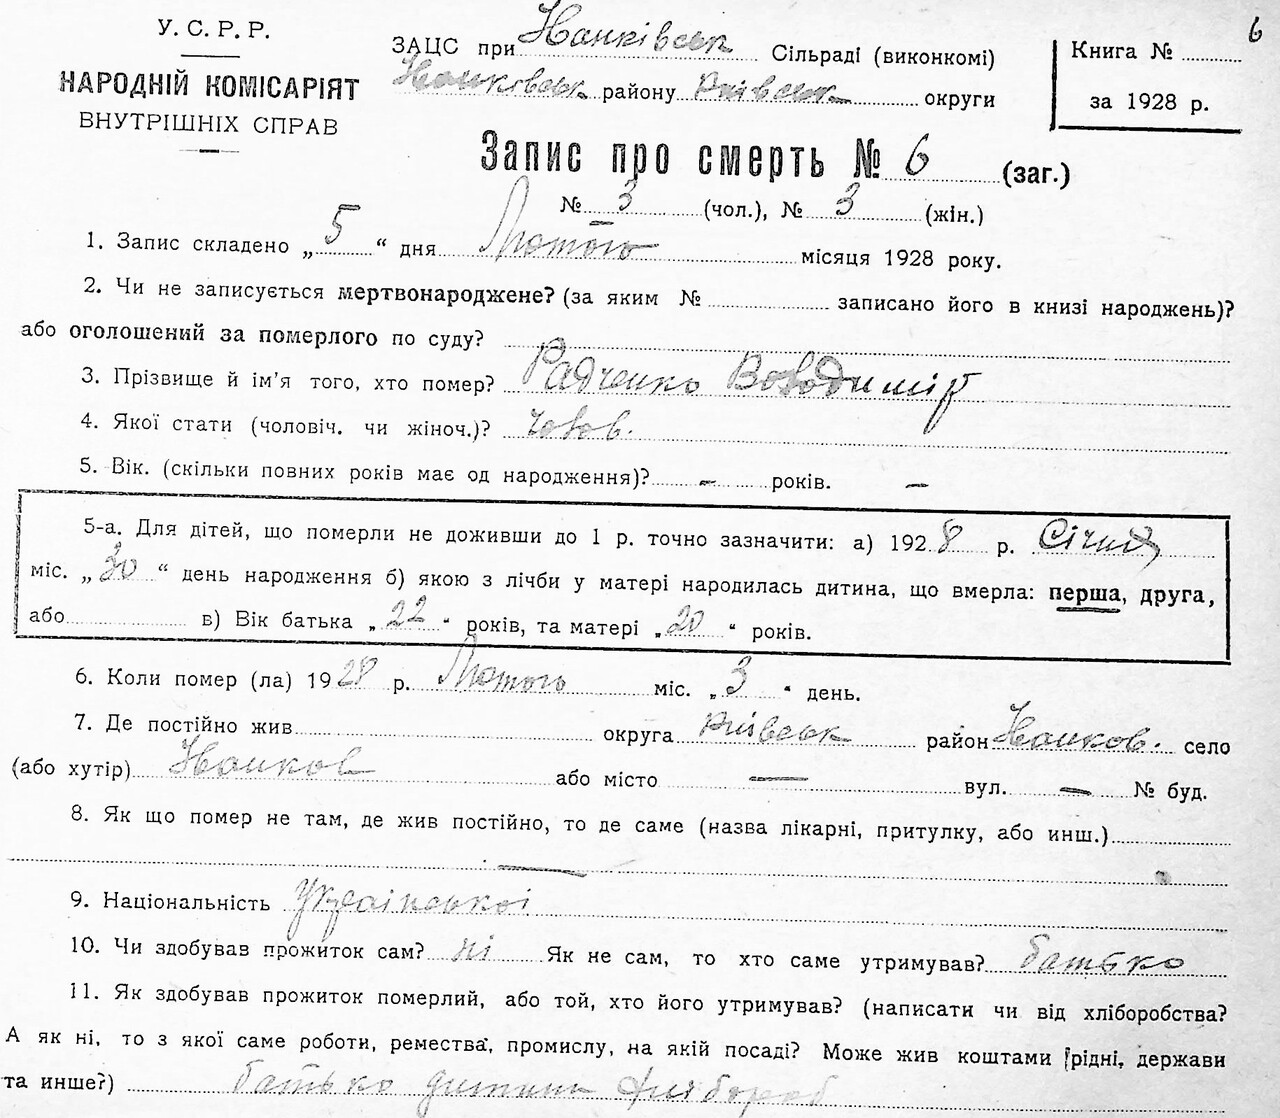 6
У. С. Р. Р.
НАРОДНІЙ КОМІСАРІЯТ
ВНУТРІШНІХ СПРАВ
ЗАЦС при Іванківськ Сільраді (виконкомі)
Іванківськ району Київськ округи
Книга №
за 1928 р.
Запис про смерть № 6 (заг.)
№ 3 (чол.), № 3 (жін.)
1. Запис складено „5“ дня Лютого місяця 1928 року.
2. Чи не записується мертвонароджене? (за яким № записано його в книзі народжень)?
або оголошений за померлого по суду?
3. Прізвище й ім’я того, хто помер? Радченко Володимір
4. Якої стати (чоловіч. чи жіноч.)? чолов.
5. Вік. (скільки повних років має од народження)? – років. –
5-а. Для дітей, що померли не доживши до 1 р. точно зазначити: а) 1928 р. Січня
міс. „30“ день народження б) якою з лічби у матері народилась дитина, що вмерла: перша, друга,
або в) Вік батька „22“ років, та матері „20“ років.
6. Коли помер (ла) 1928 р. Лютого міс. „3“ день.
7. Де постійно жив округа Київськ район Іванков. село
(або хутір) Іванков або місто — вул. — № буд.
8. Як що помер не там, де жив постійно, то де саме (назва лікарні, притулку, або инш.)
—
9. Національність Української
10. Чи здобував прожиток сам? ні Як не сам, то хто саме утримував? батько
11. Як здобував прожиток померлий, або той, хто його утримував? (написати чи від хліборобства?
А як ні, то з якої саме роботи, ремества, промислу, на якій посаді? Може жив коштами рідні, держави
та инше?) батько дитини хлібороб